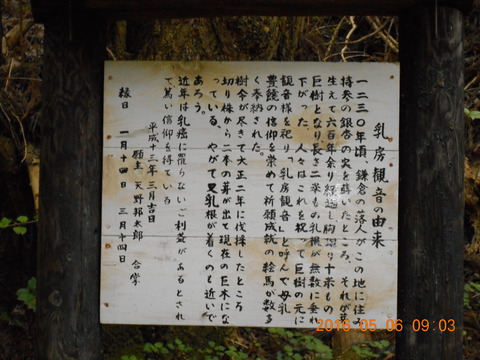 乳房観音の由来
一二三〇年頃、鎌倉の落人がこの地に住み
持参の銀杏の実を蒔いたところ、それが芽
生えて六百年余り経過し胸廻り十米もの
巨樹となり長き二米もの乳根が無数に垂れ
下がった 人々はこれを祝って巨樹の元に
観音様を祀り「乳房観音」と呼んで母乳
豊饒の信仰を崇めて祈願成就の絵馬が数多
く奉納された。
樹令が尽きて大正二年に伐採したところ
切り株から二本の芽が出て現在の巨木にな
っている、やがて又乳根が着くのも近いで
あろう。
近年は乳癌に罹らないご利益があるとされ
て篤い信仰を得ている
平成十三年三月吉日
願主 天野邦太郎 合掌
縁日 一月十四日 三月十四日
2018.05.06 09:03